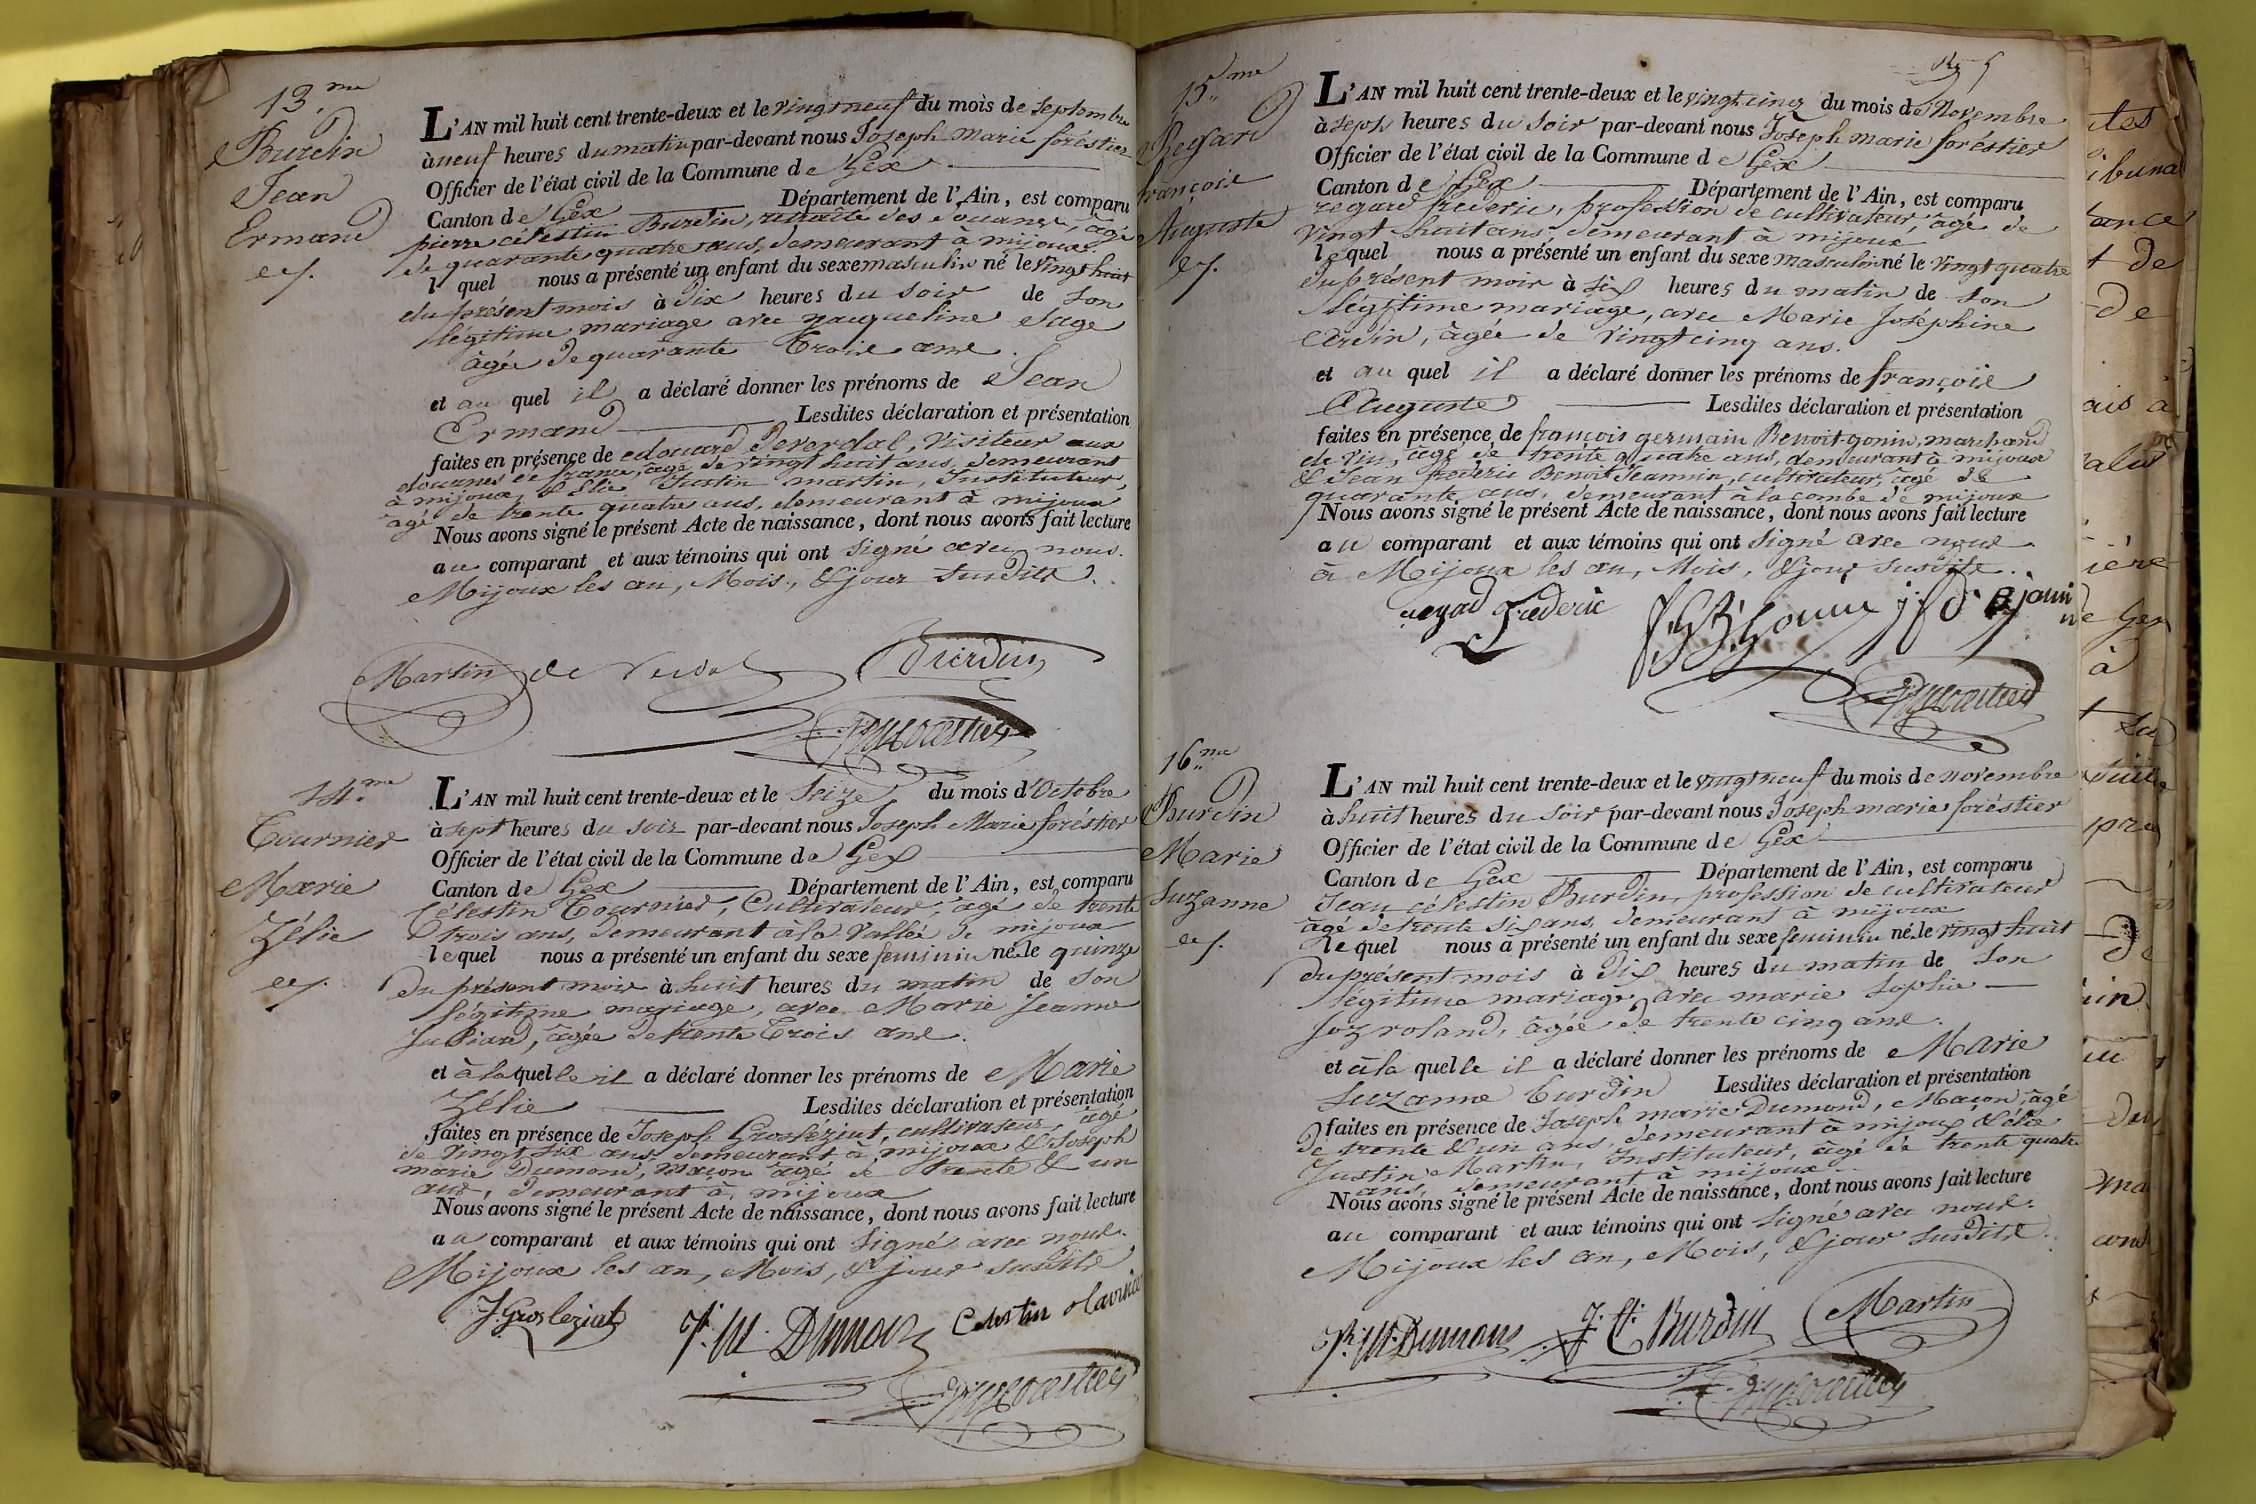 13.me
Burdin
Jean
Ermand
L'AN mil huit cent trente-deux et le vingt neuf du mois de Septembre
à neuf heures du matin par-devant nous Joseph Marie foréstier
Officier de l'état civil de la Commune de Gex
Canton de Gex Département de l'Ain, est comparu
pierre célestin Burdin, retraite des douanes, âgé
de quarante quatre ans, demeurant à mijoux
lequel nous a présenté un enfant du sexe masculin né le vingt huit
du présent mois à dix heures du soir de son
légitime mariage avec jacqueline Sage
âgée de quarante trois ans.
et au quel il a déclaré donner les prénoms de Jean
Ermand Lesdites déclaration et présentation
faites en présence de edouard Deverdal, visiteur aux
douanes de france, âgé de vingt huit ans, demeurant
à mijoux, & Elie Justin martin, Instituteur,
âgé de trente quatre ans, demeurant à mijoux
Nous avons signé le présent Acte de naissance, dont nous avons fait lecture
au comparant et aux témoins qui ont signé avec nous.
Mijoux les an, Mois, & jour susdits.
Martin de Verdal Burdin
14.me
Tournier
Marie
Zélie
L'AN mil huit cent trente-deux et le Seize du mois d'Octobre
à sept heures du soir par-devant nous Joseph Marie foréstier
Officier de l'état civil de la Commune de Gex
Canton de Gex Département de l'Ain, est comparu
Célestin Tournier, Cultivateur, âgé de trente
trois ans, demeurant à la Vallée de mijoux
lequel nous a présenté un enfant du sexe feminin né le quinze
du présent mois à huit heures du matin de son
légitime mariage, avec Marie Jeanne
Julliard, âgée de trente trois ans.
et à la quelle il a déclaré donner les prénoms de Marie
Zélie Lesdites déclaration et présentation
faites en présence de Joseph Grosléziat, cultivateur, âgé
de vingt six ans, demeurant à mijoux & Joseph
marie Dumond, maçon âgé de trente & un
ans, demeurant à mijoux
Nous avons signé le présent Acte de naissance, dont nous avons fait lecture
au comparant et aux témoins qui ont signé avec nous.
Mijoux les an, Mois, & jour susdits
J. Grosleziat J. M. Dumond Celestin
15.me
Regard
françois
Auguste
L'AN mil huit cent trente-deux et le vingt cinq du mois de Novembre
à sept heures du soir par-devant nous Joseph marie foréstier
Officier de l'état civil de la Commune de Gex
Canton de Gex Département de l'Ain, est comparu
regard frederic, profession de cultivateur, âgé de
vingt huit ans demeurant à mijoux
lequel nous a présenté un enfant du sexe masculin né le vingt quatre
du présent mois à six heures du matin de son
légitime mariage, avec Marie Joséphine
Verdin, âgée de vingt cinq ans.
et au quel il a déclaré donner les prénoms de françois
Auguste Lesdites déclaration et présentation
faites en présence de françois germain Benoit-gonin, marchand
de vin, âgé de trente quatre ans, demeurant à mijoux
& Jean frederic Benoit Jeannin, cultivateur, âgé de
quarante ans, demeurant à la combe de mijoux
Nous avons signé le présent Acte de naissance, dont nous avons fait lecture
au comparant et aux témoins qui ont signé avec nous
à Mijoux les an, Mois, & jour susdits.
16.me
Burdin
Marie
Suzanne
L'AN mil huit cent trente-deux et le vingt neuf du mois de novembre
à huit heures du soir par-devant nous Joseph marie foréstier
Officier de l'état civil de la Commune de Gex
Canton de Gex Département de l'Ain, est comparu
Jean célestin Burdin, profession de cultivateur
âgé de trente six ans, demeurant à mijoux
lequel nous a présenté un enfant du sexe feminin né le vingt huit
du présent mois à dix heures du matin de son
légitime mariage avec marie Sophie
Jozroland, âgée de trente cinq ans.
et à la quelle il a déclaré donner les prénoms de Marie
Suzanne burdin Lesdites déclaration et présentation
faites en présence de Joseph marie Dumond, Maçon, âgé
de trente & un ans, demeurant à mijoux & élie
Justin Martin, Instituteur, âgé de trente quatre
ans, demeurant à mijoux
Nous avons signé le présent Acte de naissance, dont nous avons fait lecture
au comparant et aux témoins qui ont signé avec nous.
Mijoux les an, Mois, & jour susdits.
J. M. Dumond J. C. Burdin Martin